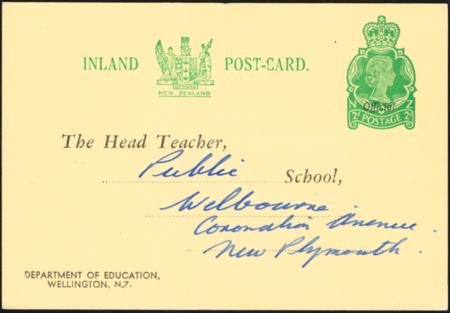 INLAND POST-CARD.
NEW ZEALAND
Official
N Z
2d POSTAGE 2d
The Head Teacher,
Public School,
Welbourne
Coronation Avenue
New Plymouth.
DEPARTMENT OF EDUCATION,
WELLINGTON, N.Z.